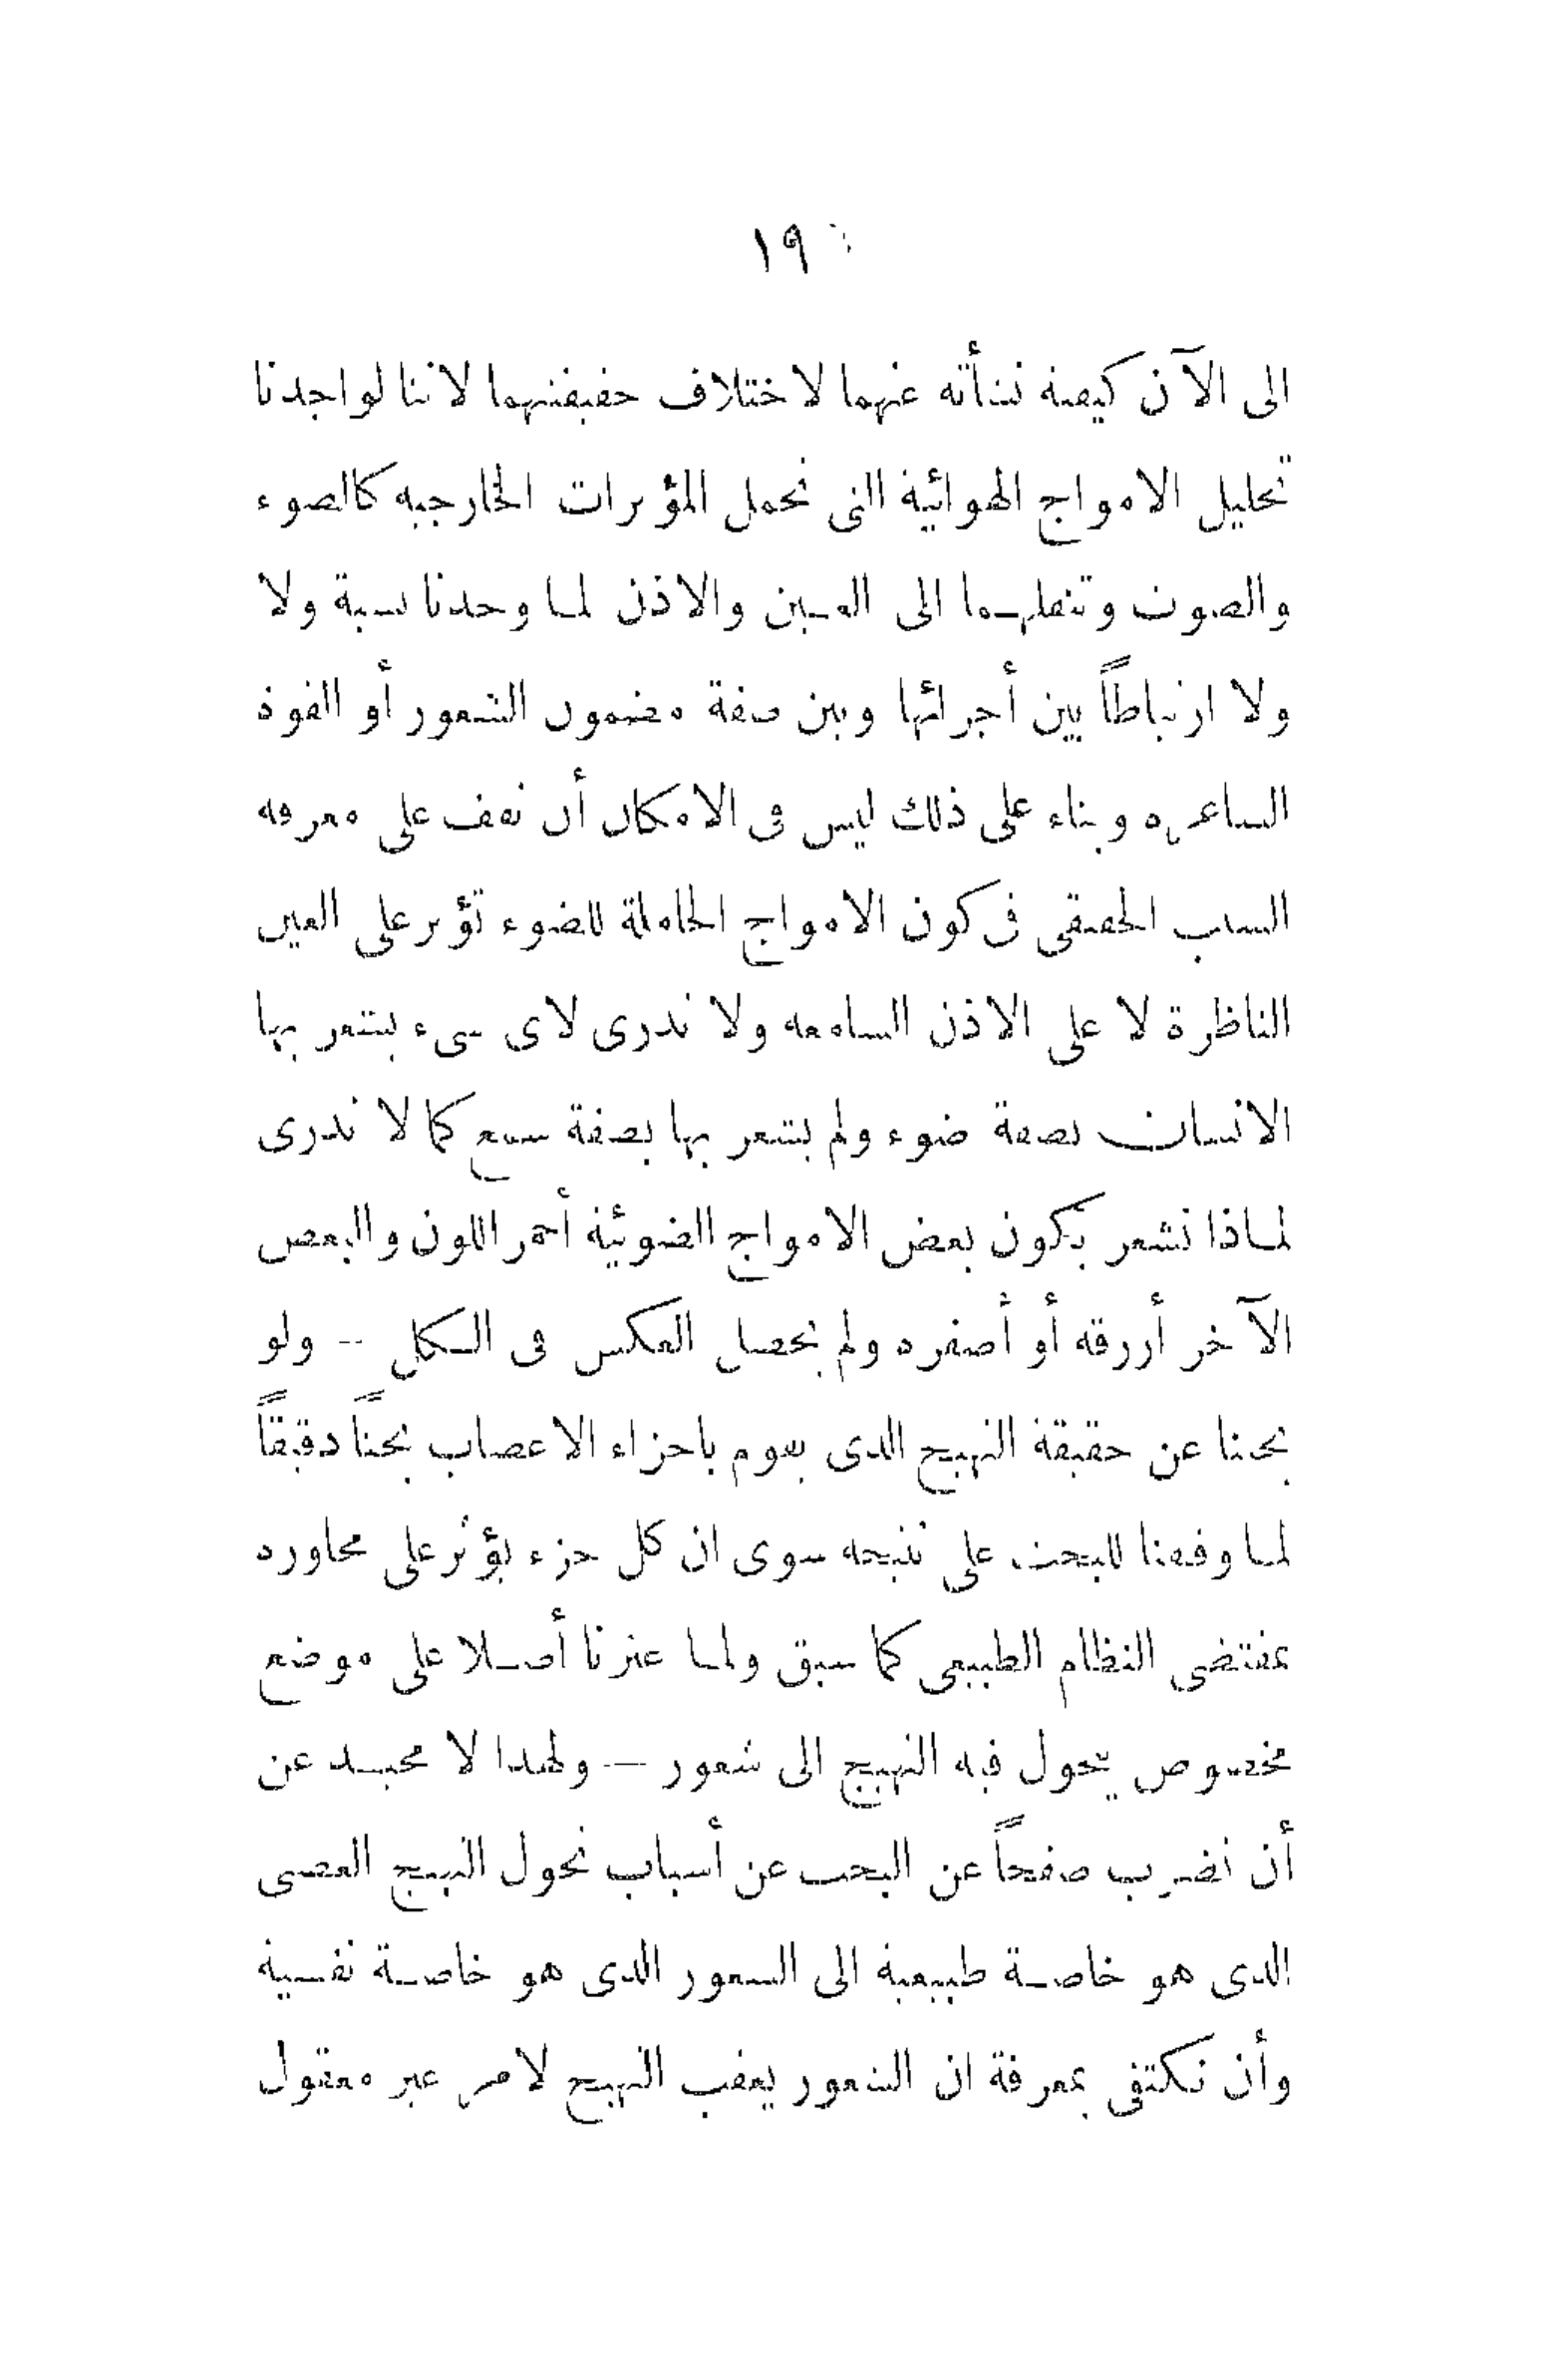 ١٩
الى الآن كيفية نشأته عنهما لاختلاف حقيقتهما لاننا لو اجدنا
تحليل الامواج الهوائية التى تحمل المؤثرات الخارجية كالضوء
والصوت وتنقلهما الى العين والاذن لما وجدنا نسبة ولا
ولا ارتباطاً بين أجزائها وبين صفة مضمون الشعور أو القوة
الشاعرة وبناء على ذلك ليس فى الامكان أن نقف على معرفة
السبب الحقيقى فى كون الامواج الحاملة للضوء تؤثر على العين
الناظرة لا على الاذن السامعة ولا ندرى لاى شىء يشعر بها
الانسان بصفة ضوء ولم يشعر بها بصفة سمع كما لا ندرى
لماذا نشعر بكون بعض الامواج الضوئية أحمر اللون والبعض
الآخر أزرقه أو أصفره ولم يحصل العكس فى الكل -- ولو
بحثنا عن حقيقة التهيج الذى يقوم باجزاء الاعصاب بحثاً دقيقاً
لما وقفنا للبحث على نتيجة سوى ان كل جزء يؤثر على مجاوره
بمقتضى النظام الطبيعى كما سبق ولما عثرنا أصلا على موضع
مخصوص يتحول فيه التهيج الى شعور — ولهذا لا محيد عن
أن نضرب صفحاً عن البحث عن أسباب تحول التهيج العصبى
الذى هو خاصة طبيعية الى الشعور الذى هو خاصة نفسية
وأن نكتفى بمعرفة ان الشعور يعقب التهيج لامر غير معقول